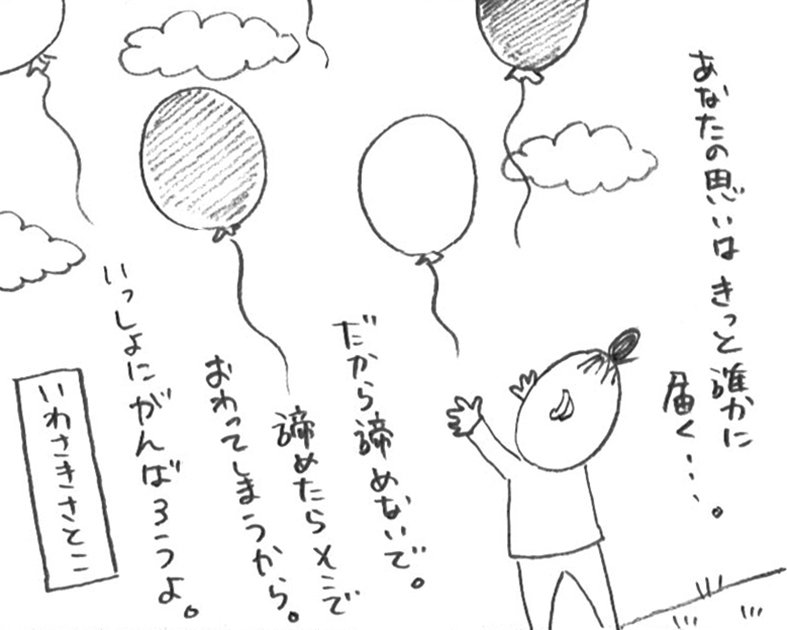 あなたの思いは きっと誰かに
届く・・・。
だから諦めないで。
諦めたらそこで
おわってしまうから。
いっしょにがんばろうよ。
いわさきさとこ